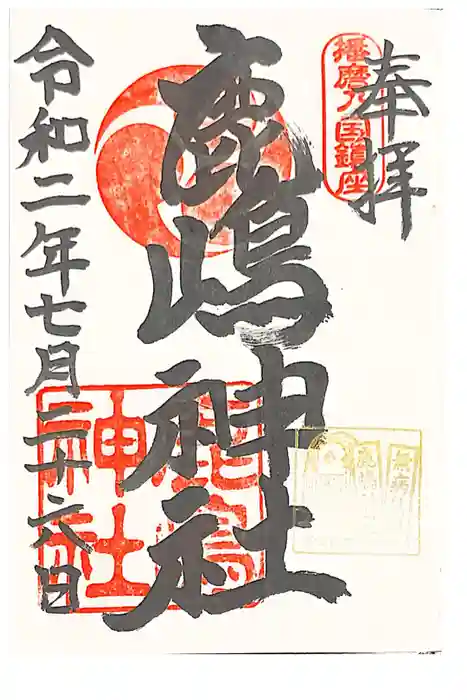 奉拝
播磨乃国鎮座
鹿嶋神社
令和二年七月二十六日